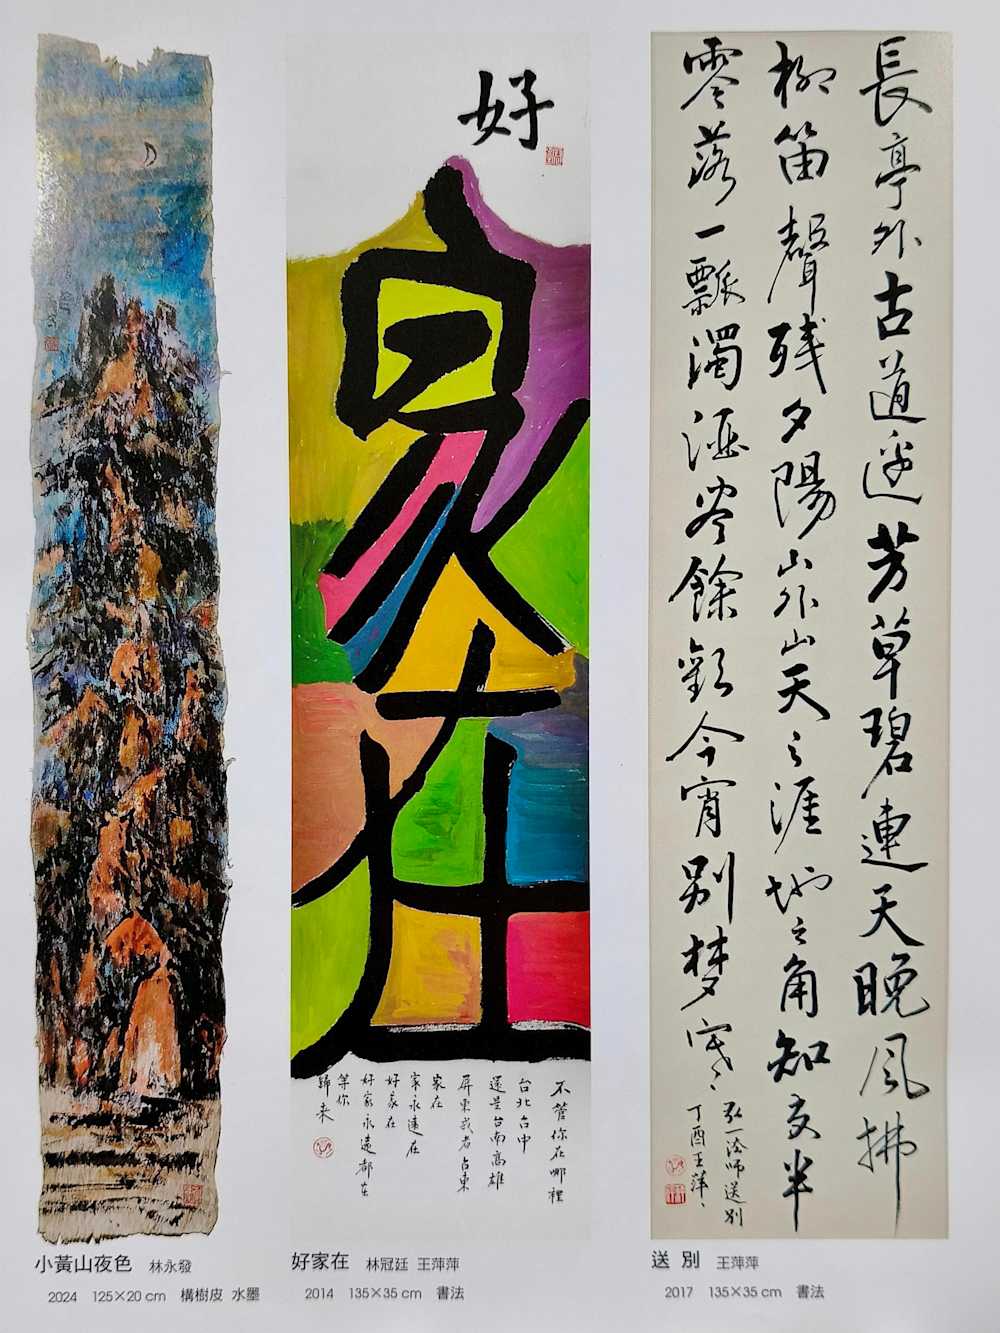 小黃山夜色 林永發
2024 125×20 cm 構樹皮 水墨
好
家在
不管你在哪裡
台北台中
還是台南高雄
屏東或者台東
家在
家永遠在
好家在
好家永遠都在
等你
歸來
好家在 林冠廷 王萍萍
2014 135×35 cm 書法
長亭外古道邊芳草碧連天晚風拂
柳笛聲残夕陽山外山天之涯地之角知交半
零落一瓢濁酒盡餘歡今宵別梦寒
弘一法师送别
丁酉王萍萍
送別 王萍萍
2017 135×35 cm 書法